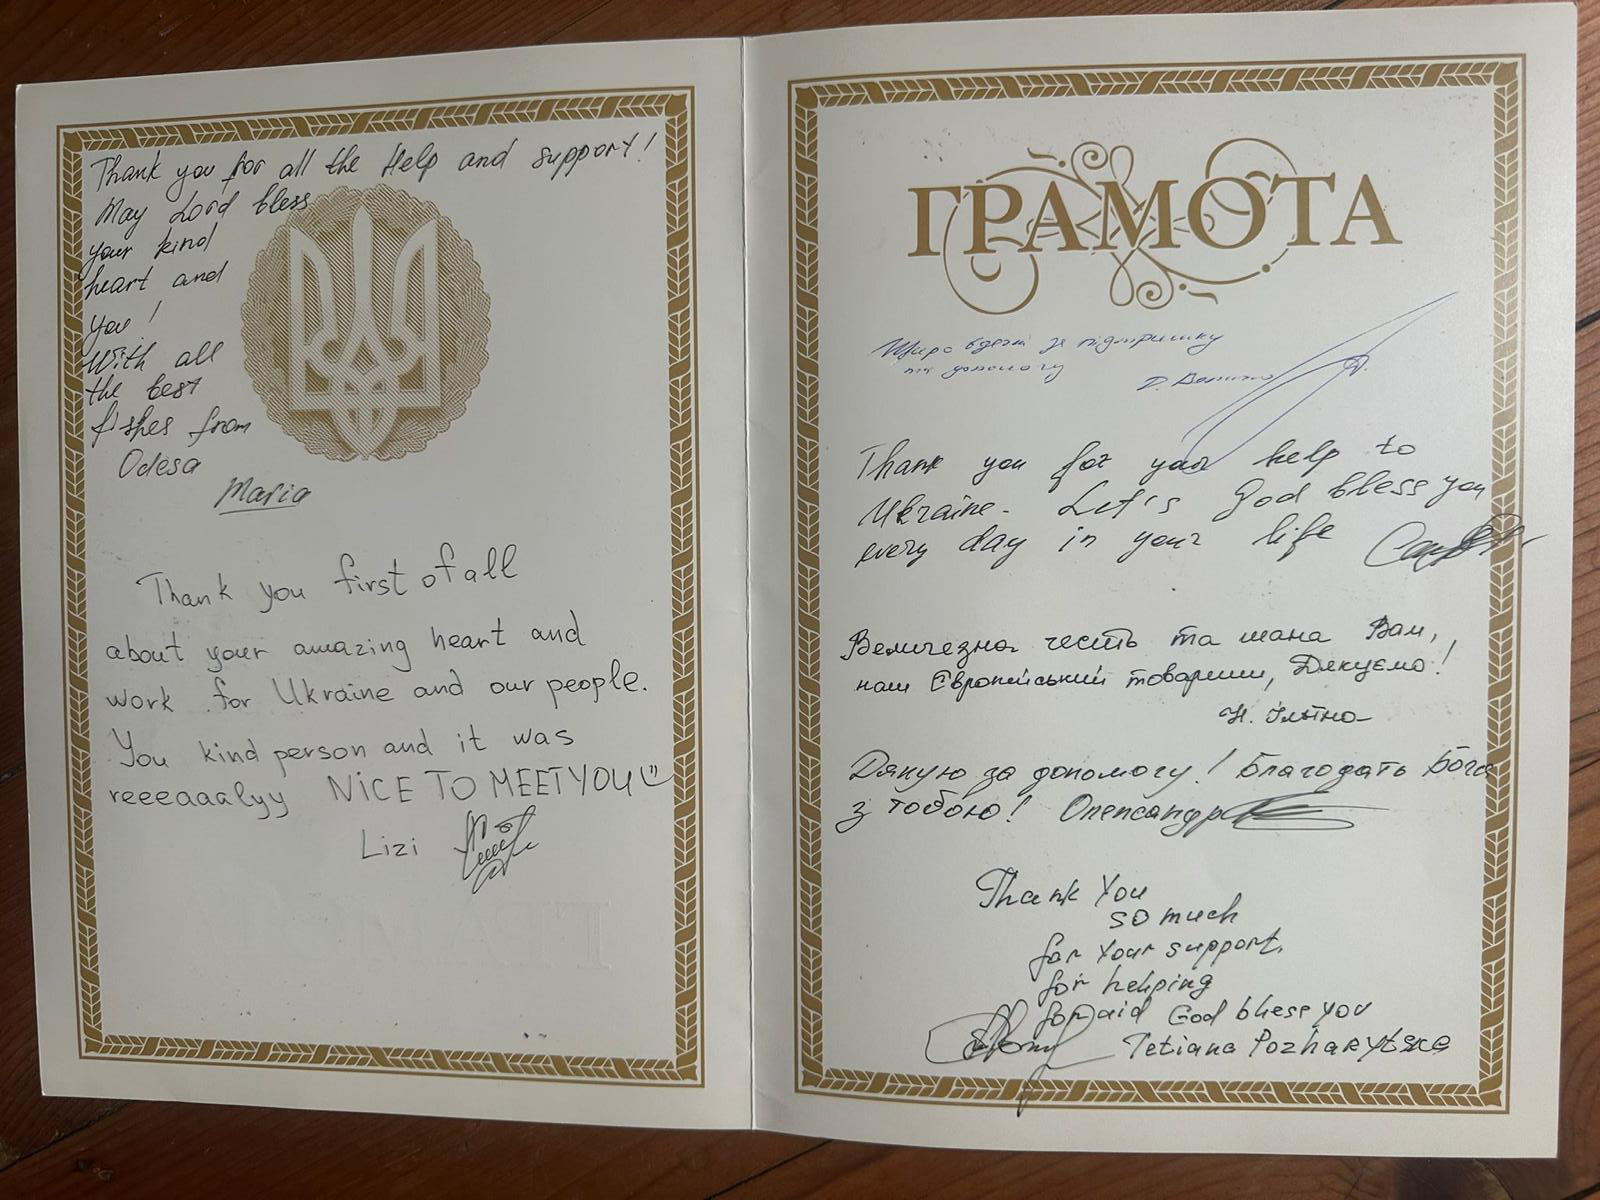 Thank you for all the Help and support!
May Lord bless
your kind
heart and
you!
With all
the best
fishes from
Odesa
Maria
Thank you first of all
about your amazing heart and
work for Ukraine and our people.
You kind person and it was
reeeaaalyy NICE TO MEET YOU
Lizi
ГРАМОТА
Щиро вдячні за підтримку
та допомогу
Thank you for your help to
Ukraine. Let's God bless you
every day in your life
Величезна честь та шана Вам,
наш Європейський товариш, Дякуємо!
Н. Ільїна
Дякую за допомогу! Благодать Бога
з тобою! Олександр
Thank You
so much
for Your support,
for helping
for aid God bless you
Tetiana Pozharytska